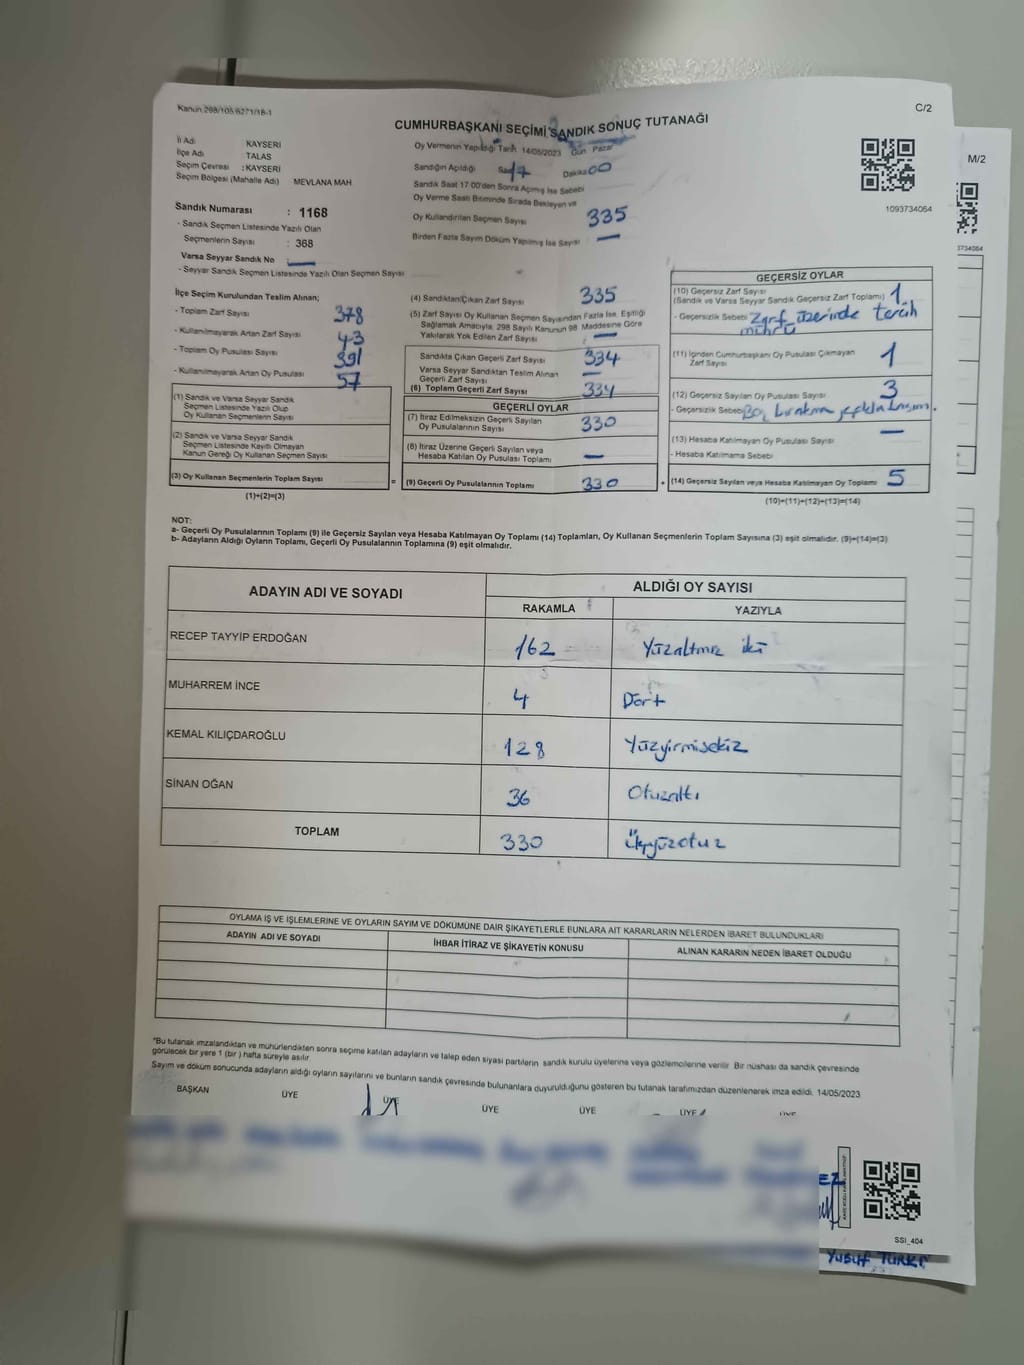 Kanun 298/105/6271/18-1
C/2
CUMHURBAŞKANI SEÇİMİ SANDIK SONUÇ TUTANAĞI
M/2
İl Adı KAYSERİ
İlçe Adı TALAS
Seçim Çevresi : KAYSERİ
Seçim Bölgesi (Mahalle Adı) MEVLANA MAH
Oy Vermenin Yapıldığı Tarih 14/05/2023 Gün Pazar
Sandığın Açıldığı Saat 17 Dakika 00
Sandık Saat 17.00'den Sonra Açılmış İse Sebebi
Oy Verme Saati Bitiminde Sırada Bekleyen ve
Oy Kullandırılan Seçmen Sayısı 335
Birden Fazla Sayım Döküm Yapılmış İse Sayısı —
1093734064
Sandık Numarası : 1168
- Sandık Seçmen Listesinde Yazılı Olan
Seçmenlerin Sayısı : 368
Varsa Seyyar Sandık No : —
- Seyyar Sandık Seçmen Listesinde Yazılı Olan Seçmen Sayısı
İlçe Seçim Kurulundan Teslim Alınan;
- Toplam Zarf Sayısı 378
- Kullanılmayarak Artan Zarf Sayısı 43
- Toplam Oy Pusulası Sayısı 391
- Kullanılmayarak Artan Oy Pusulası 57
(1) Sandık ve Varsa Seyyar Sandık
Seçmen Listesinde Yazılı Olup
Oy Kullanan Seçmenlerin Sayısı
(2) Sandık ve Varsa Seyyar Sandık
Seçmen Listesinde Kayıtlı Olmayan
Kanun Gereği Oy Kullanan Seçmen Sayısı
(3) Oy Kullanan Seçmenlerin Toplam Sayısı
(1)+(2)=(3)
=
(4) Sandıktan Çıkan Zarf Sayısı 335
(5) Zarf Sayısı Oy Kullanan Seçmen Sayısından Fazla İse, Eşitliği
Sağlamak Amacıyla, 298 Sayılı Kanunun 98. Maddesine Göre
Yakılarak Yok Edilen Zarf Sayısı —
Sandıkta Çıkan Geçerli Zarf Sayısı 334
Varsa Seyyar Sandıktan Teslim Alınan
Geçerli Zarf Sayısı —
(6) Toplam Geçerli Zarf Sayısı 334
GEÇERLİ OYLAR
(7) İtiraz Edilmeksizin Geçerli Sayılan
Oy Pusulalarının Sayısı 330
(8) İtiraz Üzerine Geçerli Sayılan veya
Hesaba Katılan Oy Pusulası Toplamı —
(9) Geçerli Oy Pusulalarının Toplamı 330
+
GEÇERSİZ OYLAR
(10) Geçersiz Zarf Sayısı
(Sandık ve Varsa Seyyar Sandık Geçersiz Zarf Toplamı) 1
- Geçersizlik Sebebi Zarf üzerinde tercih
mührü
(11) İçinden Cumhurbaşkanı Oy Pusulası Çıkmayan
Zarf Sayısı 1
(12) Geçersiz Sayılan Oy Pusulası Sayısı 3
- Geçersizlik Sebebi Boş bırakma
(13) Hesaba Katılmayan Oy Pusulası Sayısı —
- Hesaba Katılmama Sebebi
(14) Geçersiz Sayılan veya Hesaba Katılmayan Oy Toplamı 5
(10)+(11)+(12)+(13)=(14)
NOT:
a- Geçerli Oy Pusulalarının Toplamı (9) ile Geçersiz Sayılan veya Hesaba Katılmayan Oy Toplamı (14) Toplamları, Oy Kullanan Seçmenlerin Toplam Sayısına (3) eşit olmalıdır. (9)+(14)=(3)
b- Adayların Aldığı Oyların Toplamı, Geçerli Oy Pusulalarının Toplamına (9) eşit olmalıdır.
ADAYIN ADI VE SOYADI ALDIĞI OY SAYISI
RAKAMLA YAZIYLA
RECEP TAYYİP ERDOĞAN 162 Yüzaltmış iki
MUHARREM İNCE 4 Dört
KEMAL KILIÇDAROĞLU 128 Yüzyirmisekiz
SİNAN OĞAN 36 Otuzaltı
TOPLAM 330 Üçyüzotuz
OYLAMA İŞ VE İŞLEMLERİNE VE OYLARIN SAYIM VE DÖKÜMÜNE DAİR ŞİKAYETLERLE BUNLARA AİT KARARLARIN NELERDEN İBARET BULUNDUKLARI
ADAYIN ADI VE SOYADI İHBAR İTİRAZ VE ŞİKAYETİN KONUSU ALINAN KARARIN NEDEN İBARET OLDUĞU
*Bu tutanak imzalandıktan ve mühürlendikten sonra seçime katılan adayların ve talep eden siyasi partilerin sandık kurulu üyelerine veya gözlemcilerine verilir. Bir nüshası da sandık çevresinde
görülecek bir yere 1 (bir) hafta süreyle asılır.
Sayım ve döküm sonucunda adayların aldığı oyların sayılarını ve bunların sandık çevresinde bulunanlara duyurulduğunu gösteren bu tutanak tarafımızdan düzenlenerek imza edildi. 14/05/2023
BAŞKAN ÜYE ÜYE ÜYE ÜYE ÜYE ÜYE
SSI_404
Yusuf